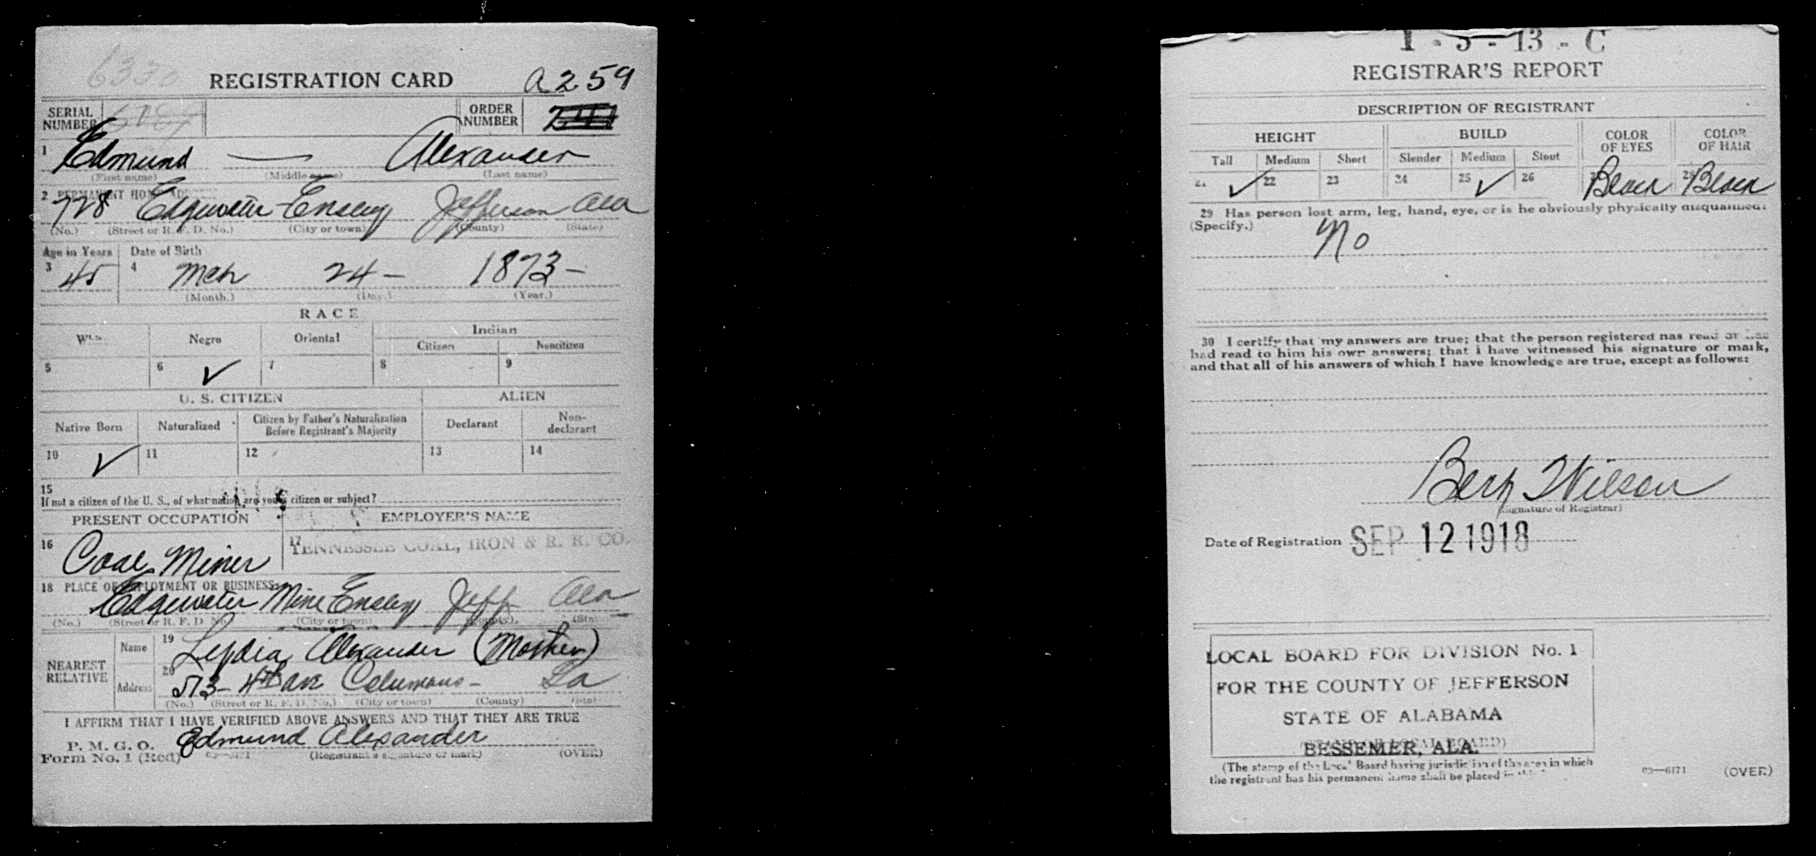 6330
REGISTRATION CARD A259
SERIAL NUMBER
ORDER NUMBER
1 Edmund — Alexander
(First name) (Middle name) (Last name)
2 PERMANENT HOME ADDRESS
728 Edgewater Ensley Jefferson Ala
(No.) (Street or R. F. D. No.) (City or town) (County) (State)
Age in Years Date of Birth
3 45 4 Mch 24 - 1873 -
(Month.) (Day.) (Year.)
RACE
White Negro Oriental Indian
Citizen Noncitizen
5 6 ✓ 7 8 9
U. S. CITIZEN ALIEN
Native Born Naturalized Citizen by Father's Naturalization Before Registrant's Majority Declarant Non-declarant
10 ✓ 11 12 13 14
15
If not a citizen of the U. S., of what nation are you a citizen or subject?
PRESENT OCCUPATION EMPLOYER'S NAME
16 Coal Miner 17 TENNESSEE COAL, IRON & R. R. CO.
18 PLACE OF EMPLOYMENT OR BUSINESS:
Edgewater Mine Ensley Jeff Ala
(No.) (Street or R. F. D. No.) (City or town) (County) (State)
NEAREST RELATIVE
Name 19 Lydia Alexander (Mother)
Address 20 513 - 4th ave Columbus - Ga
(No.) (Street or R. F. D. No.) (City or town) (County) (State)
I AFFIRM THAT I HAVE VERIFIED ABOVE ANSWERS AND THAT THEY ARE TRUE
P. M. G. O.
Form No. 1 (Red) Edmund Alexander
(Registrant's signature or mark) (OVER)
1 - 5 - 13 - C
REGISTRAR'S REPORT
DESCRIPTION OF REGISTRANT
HEIGHT BUILD COLOR OF EYES COLOR OF HAIR
Tall Medium Short Slender Medium Stout
21 ✓ 22 23 24 25 ✓ 26 27 Black 28 Black
29 Has person lost arm, leg, hand, eye, or is he obviously physically disqualified?
(Specify.) No
30 I certify that my answers are true; that the person registered has read or has
had read to him his own answers; that I have witnessed his signature or mark,
and that all of his answers of which I have knowledge are true, except as follows:
Wilson
(Signature of Registrar)
Date of Registration SEP 12 1918
LOCAL BOARD FOR DIVISION No. 1
FOR THE COUNTY OF JEFFERSON
STATE OF ALABAMA
BESSEMER, ALA.
(The stamp of the Local Board having jurisdiction of the area in which
the registrant has his permanent home shall be placed in this
03—6171 (OVER)